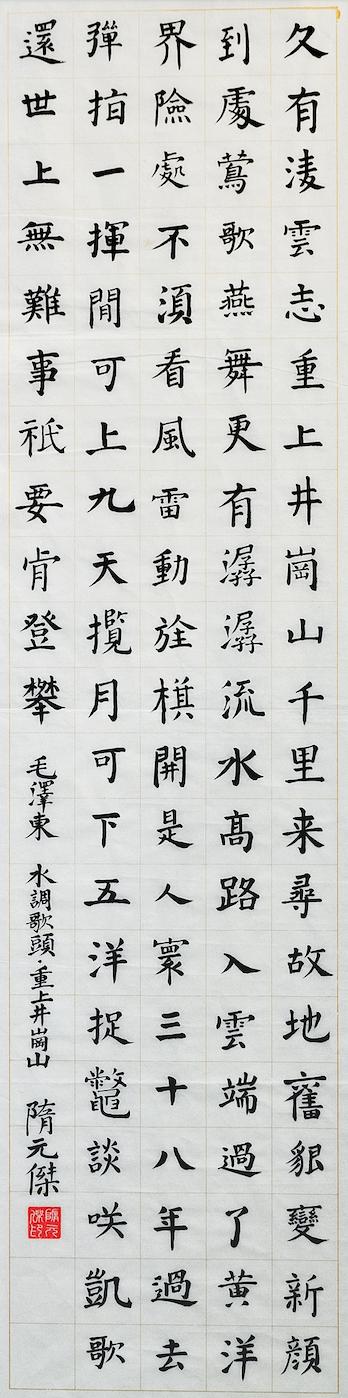 久有淩雲志重上井崗山千里来尋故地舊貌變新顔
到處鶯歌燕舞更有潺潺流水髙路入雲端過了黄洋
界險處不須看風雷動旌旗開是人寰三十八年過去
彈指一揮閒可上九天攬月可下五洋捉鼈談咲凱歌
還世上無難事祇要肯登攀 毛澤東 水調歌頭·重上井崗山 隋元傑
隋元傑印